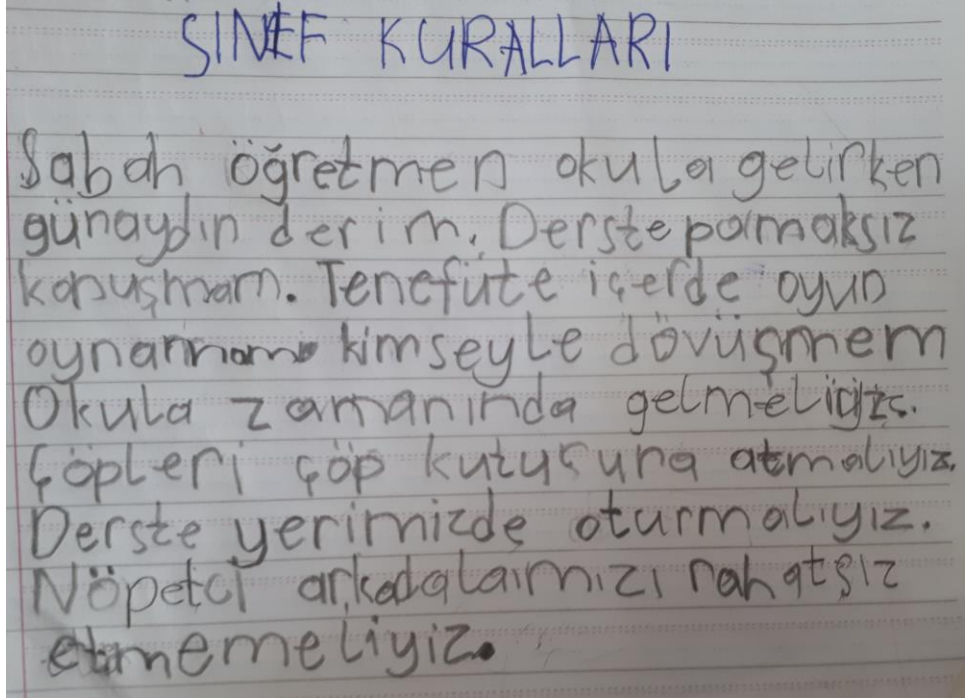 SINIF KURALLARI
Sabah öğretmen okula gelirken
günaydın derim. Derste parmaksız
konuşmam. Tenefüte içerde oyun
oynamam kimseyle dövüşmem
Okula zamanında gelmeliyiz.
Çöpleri çöp kutusuna atmalıyız.
Derste yerimizde oturmalıyız.
Nöpetci arkadalarmızı rahatsız
etmemeliyiz.